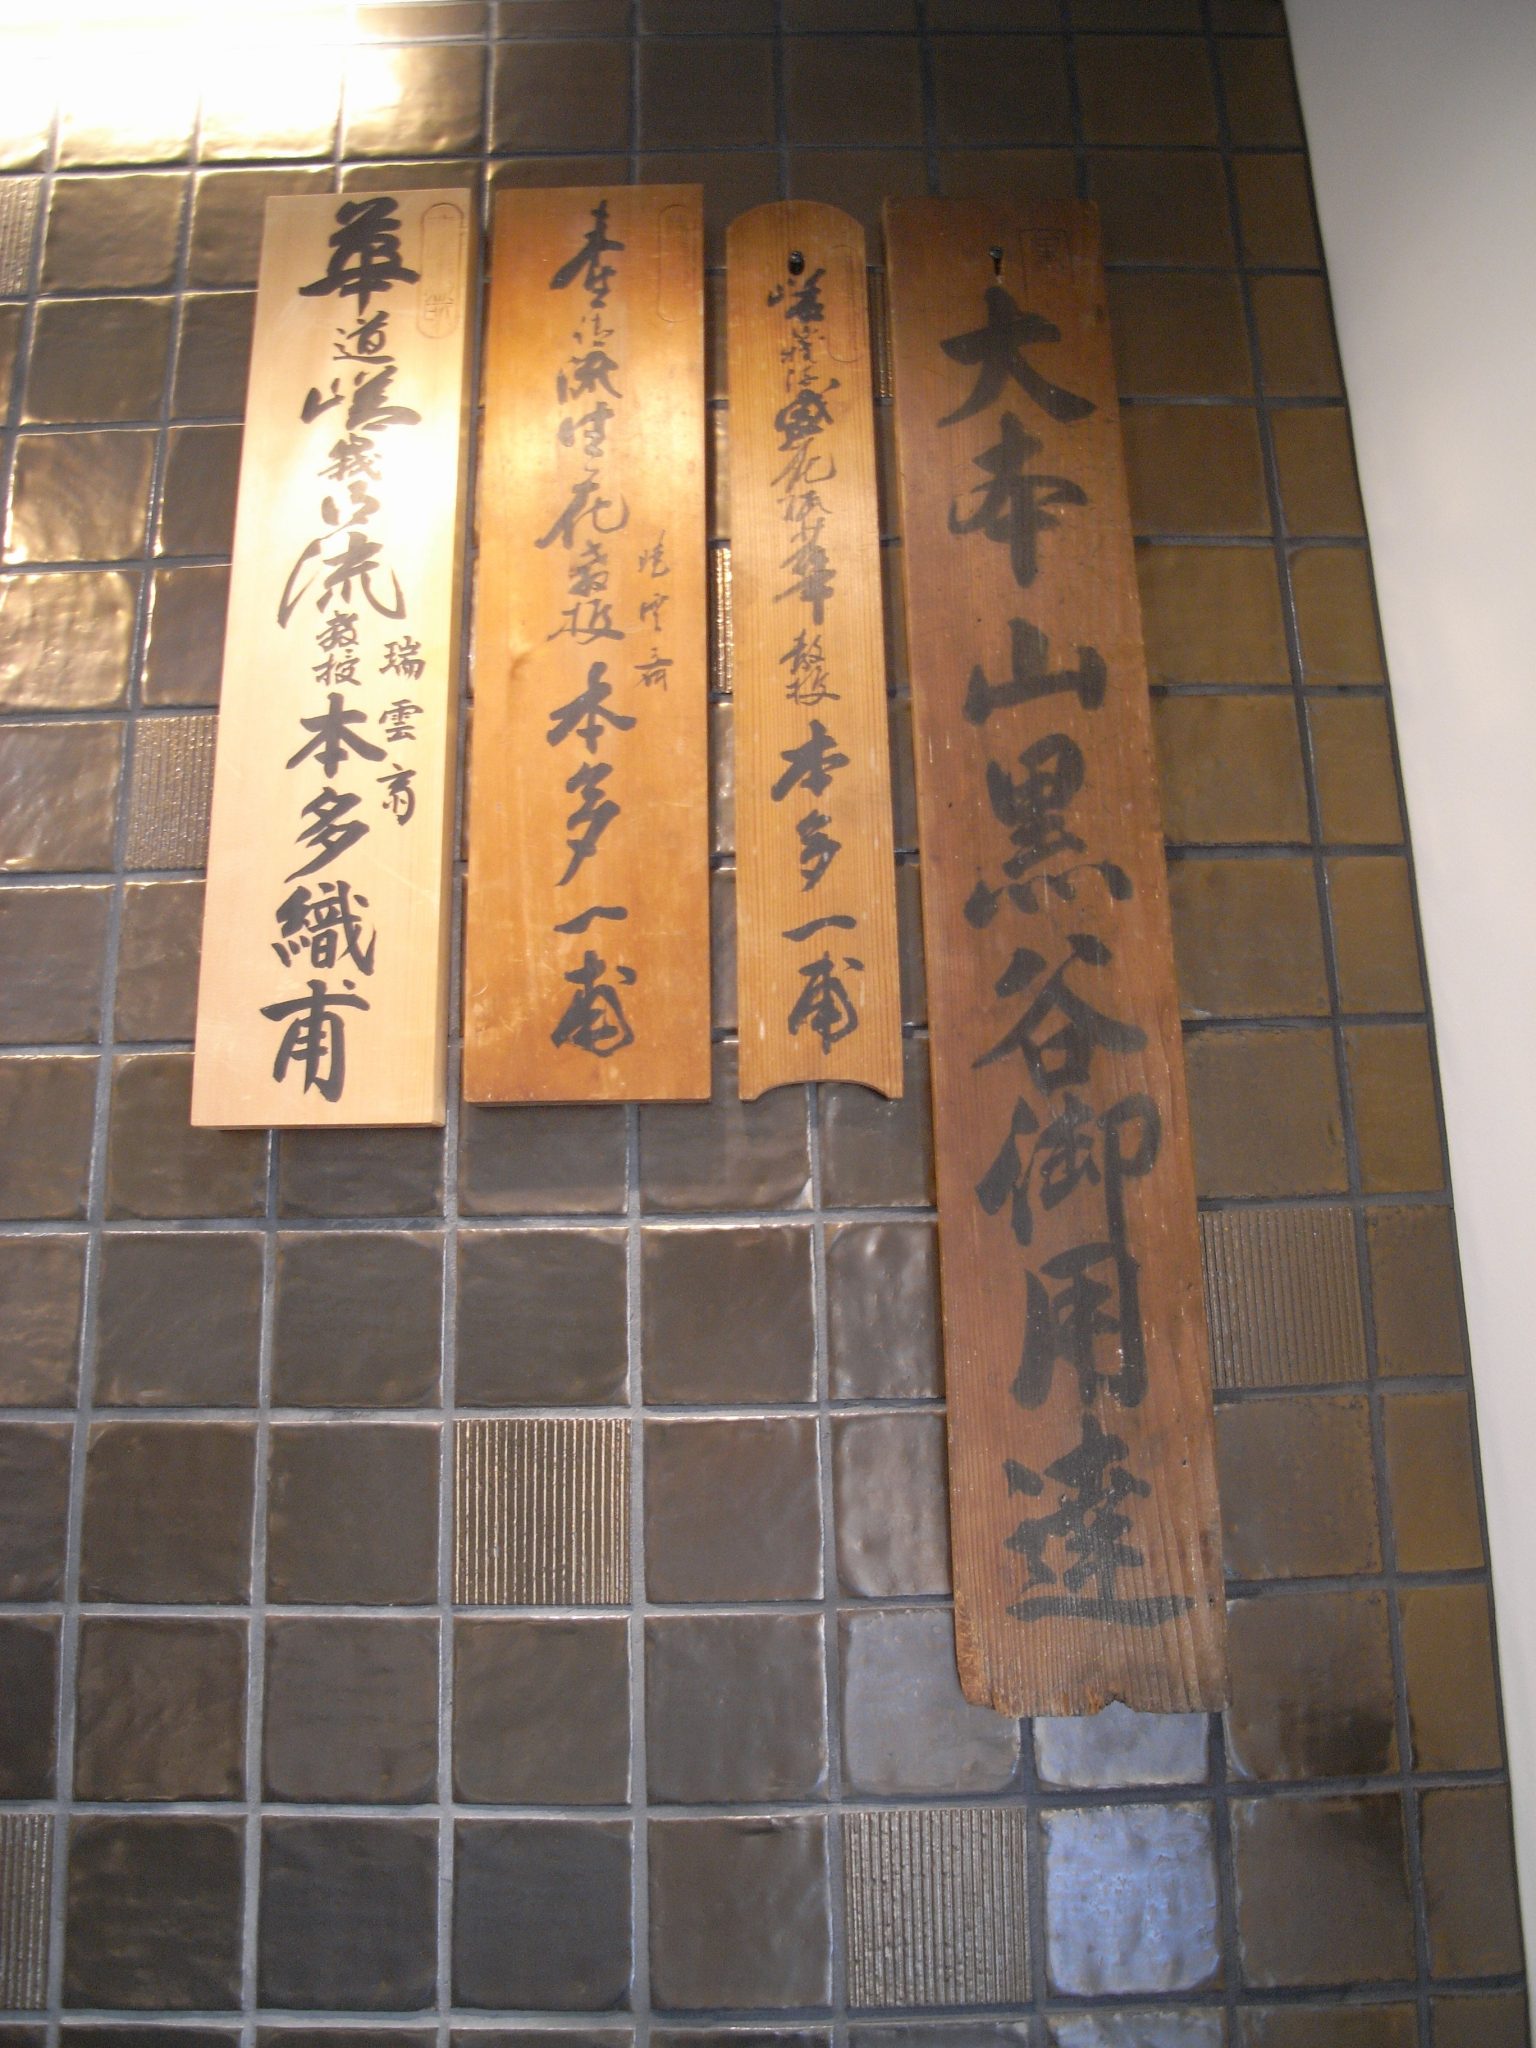 大本山黒谷御用達
嵯峨流盛花瓶華教授 本多一甫
流生花教授 本多一甫
華道嵯峨御流教授 本多織甫
瑞雲斎